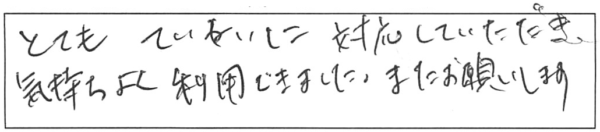 とても ていねいに 対応していただき、
気持ちよく利用できました。またお願いします